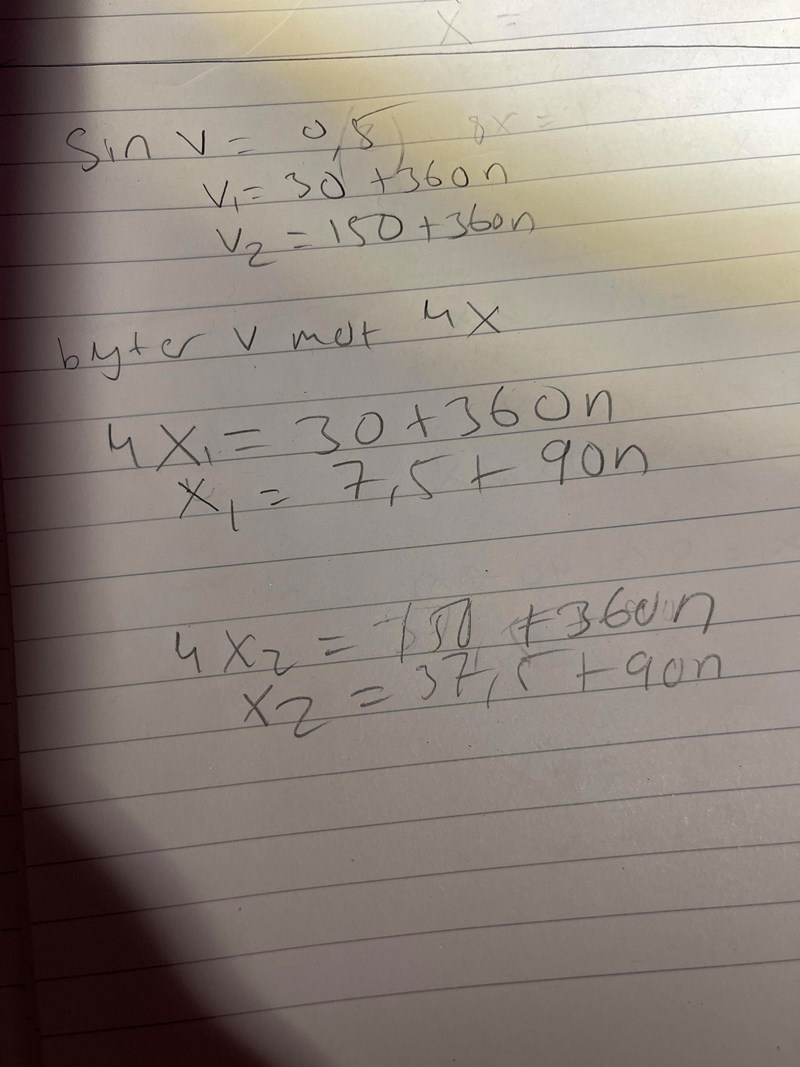 x =
Sin v = 0,5 8x =
v₁ = 30 + 360n
v₂ = 150 + 360n
byter v mot 4x
4x₁ = 30 + 360n
x₁ = 7,5 + 90n
4x₂ = 150 + 360n
x₂ = 37,5 + 90n